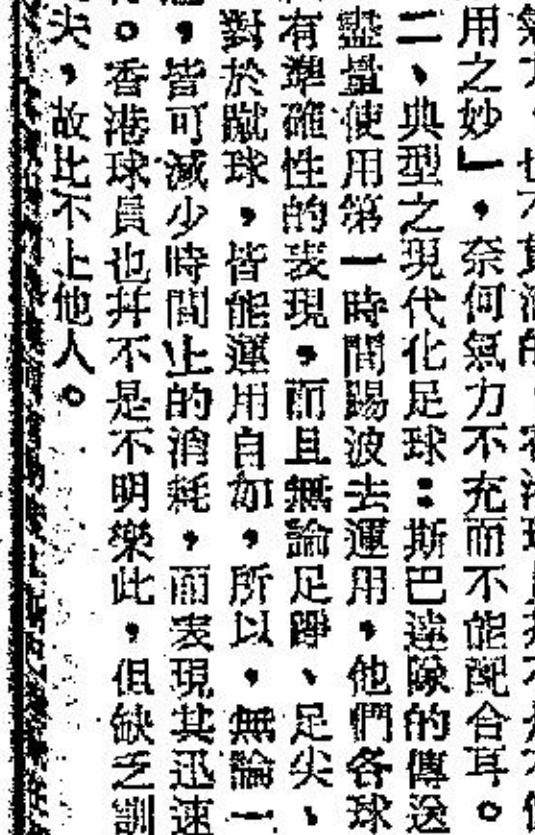 用之妙」，奈何氣力不充而不能配合耳。
二、典型之現代化足球：斯巴達隊的傳送
盡量使用第一時間踢波去運用，他們各球
有準確性的表現，而且無論足踭、足尖、
對於蹴球，皆能運用自如，所以，無論一
皆可减少時間上的消耗，而表現其迅速
。香港球員也幷不是不明樂此，但缺乏訓
夫，故比不上他人。